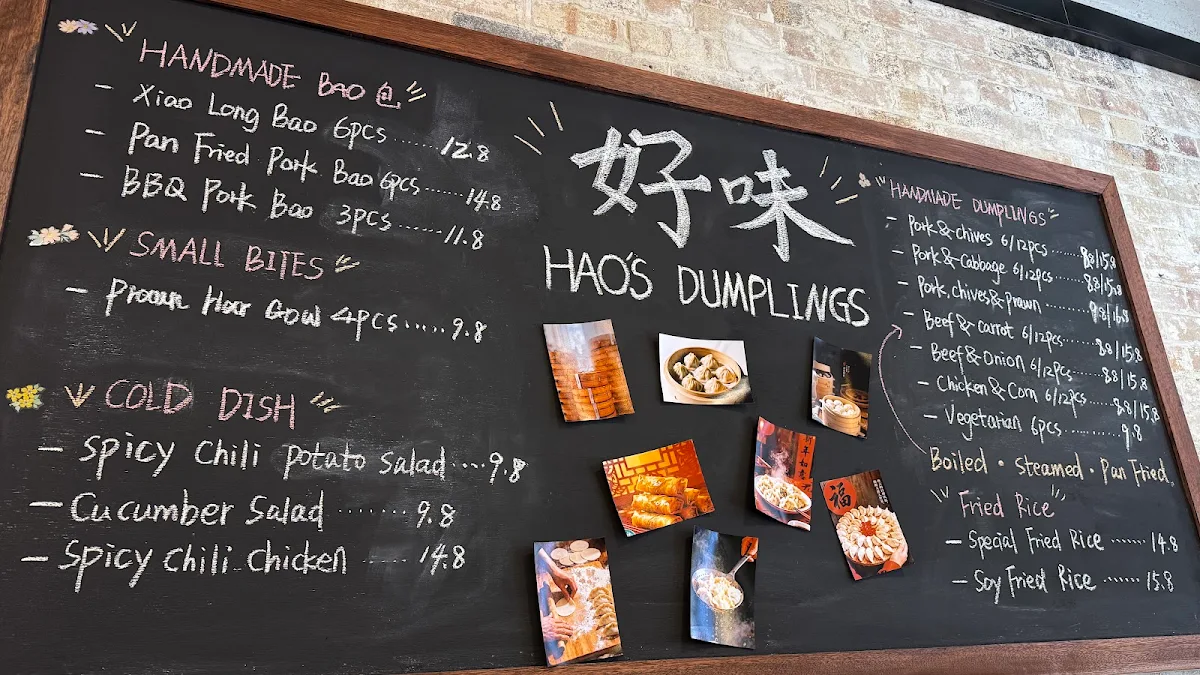 HANDMADE BAO 包
- Xiao Long Bao 6pcs ...... 12.8
- Pan Fried Pork Bao 6pcs ...... 14.8
- BBQ Pork Bao 3pcs ...... 11.8
SMALL BITES
- Prawn Har Gow 4pcs ..... 9.8
COLD DISH
- Spicy Chili potato Salad .... 9.8
- Cucumber Salad ....... 9.8
- Spicy Chili Chicken ..... 14.8
好味
HAO'S DUMPLINGS
福
HANDMADE DUMPLINGS
- Pork & chives 6/12pcs ..... 8.8/15.8
- Pork & cabbage 6/12pcs ...... 8.8/15.8
- Pork, chives & Prawn ....... 9.8/16.8
- Beef & carrot 6/12pcs ...... 8.8/15.8
- Beef & Onion 6/12pcs ..... 8.8/15.8
- Chicken & Corn 6/12pcs ..... 8.8/15.8
- Vegetarian 6pcs .......... 9.8
Boiled • Steamed • Pan Fried.
Fried Rice
- Special Fried Rice ...... 14.8
- Soy Fried Rice ...... 15.8